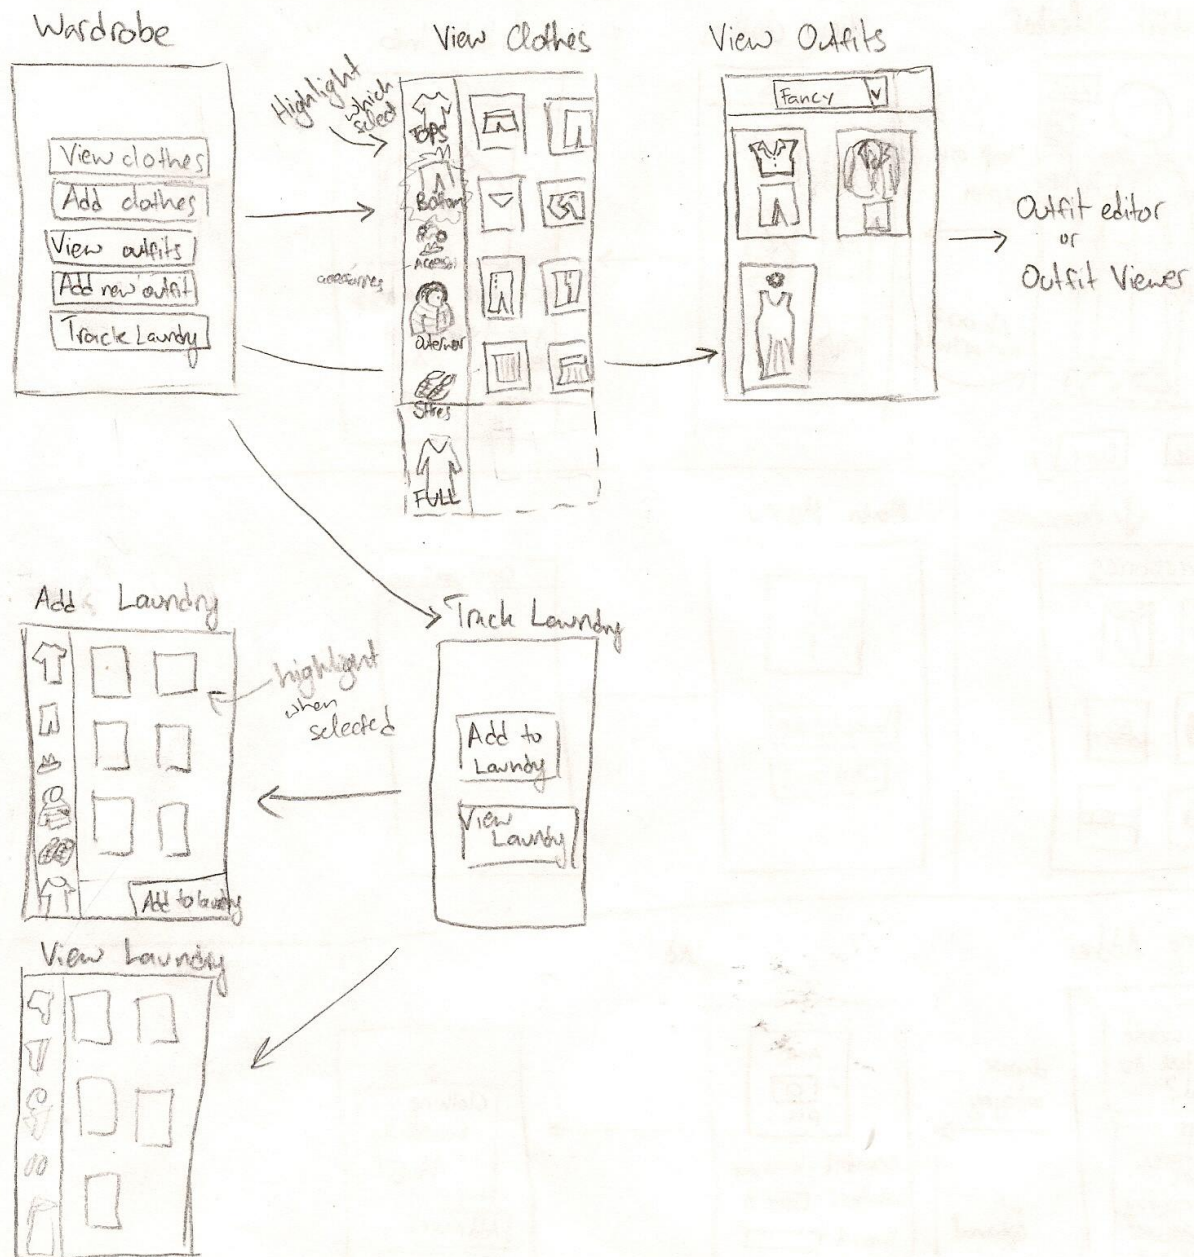 Wardrobe
View clothes
Add clothes
View outfits
Add new outfit
Track Laundry
Highlight
which
select
View Clothes
TOPS
Bottom
accessories
FULL
View Outfits
Fancy
Outfit editor
or
Outfit Viewer
Add Laundry
highlight
when
selected
Add to laundry
Track Laundry
Add to
Laundy
View
Laundry
View Laundry